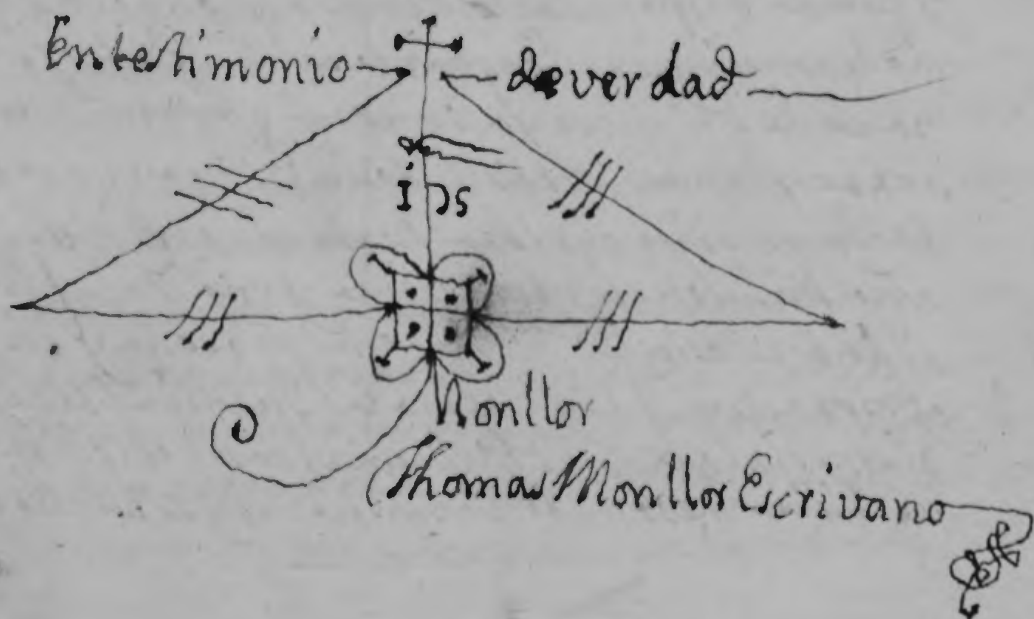 En testimonio de verdad
ihs
Monllor
Thomas Monllor Escrivano